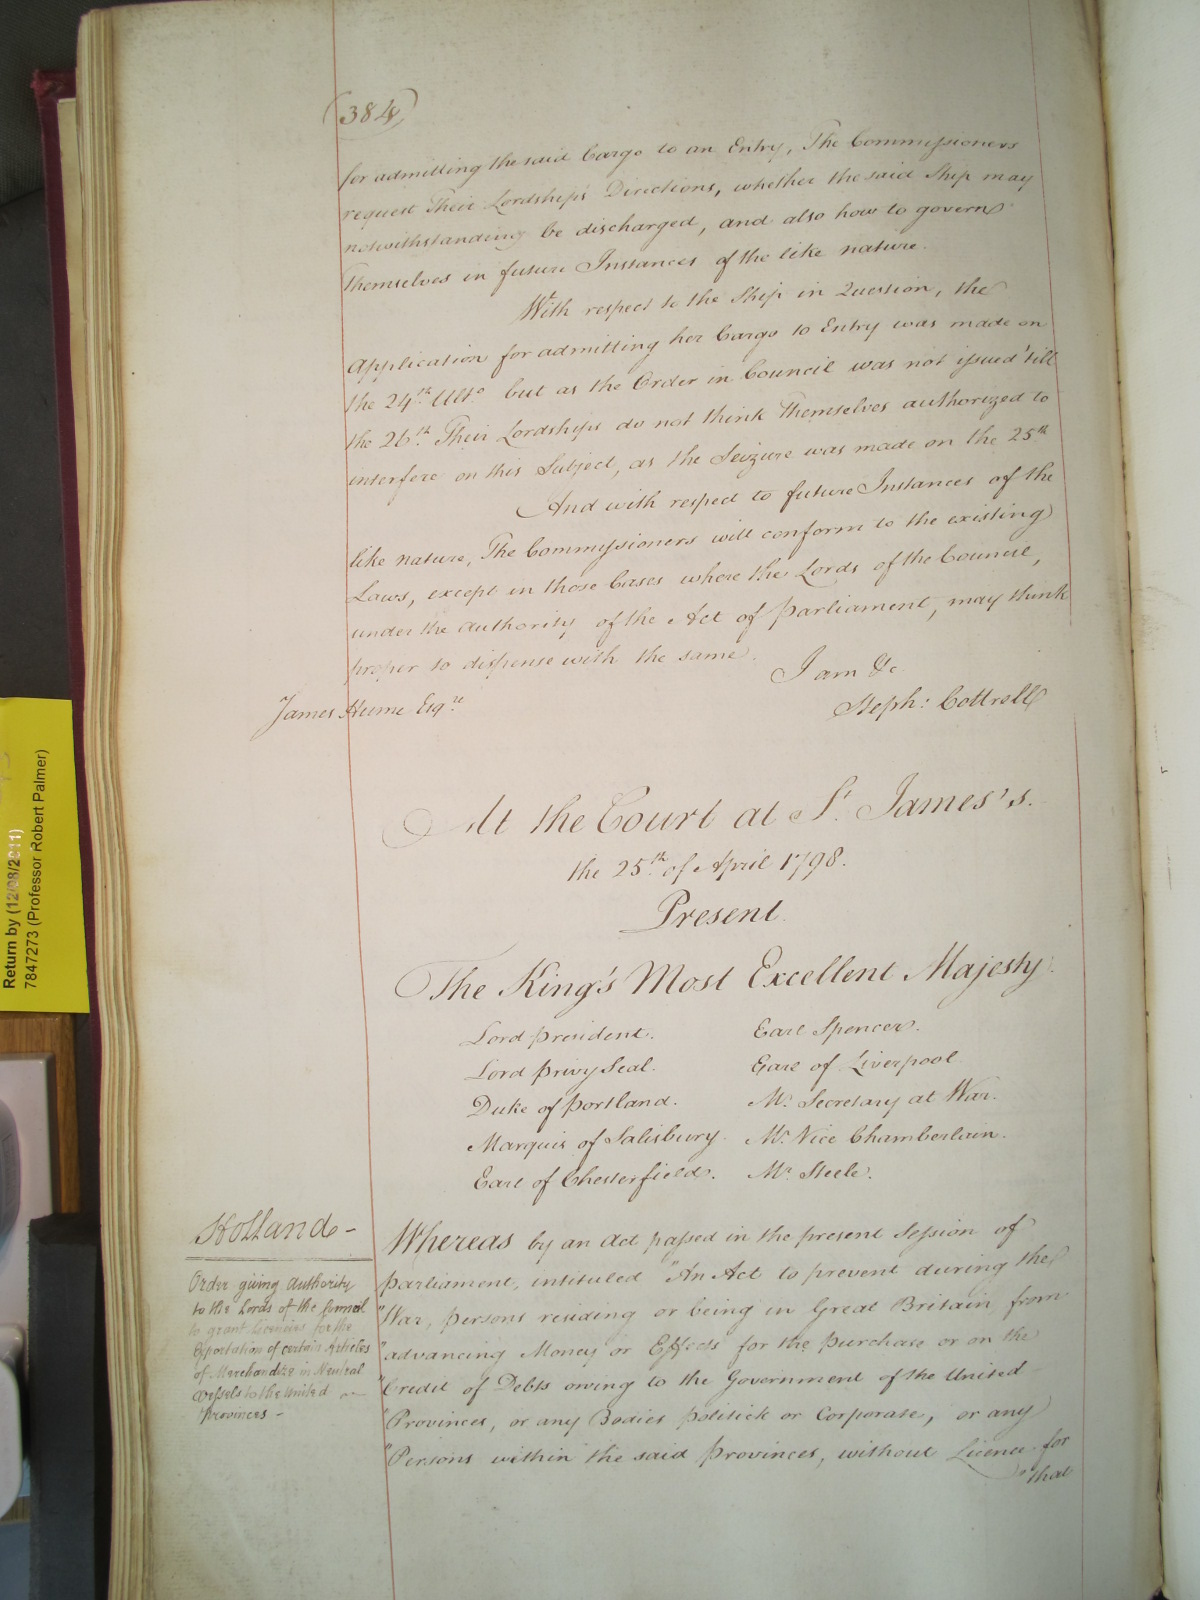 (384)
for admitting the said Cargo to an Entry, The Commissioners
request Their Lordships Directions, whether the said Ship may
notwithstanding be discharged, and also how to govern
Themselves in future Instances of the like nature.
With respect to the Ship in Question, the
Application for admitting her Cargo to Entry was made on
the 24th Ulto but as the Order in Council was not issued 'till
the 26th Their Lordships do not think Themselves authorized to
interfere on this Subject, as the Seizure was made on the 25th
And with respect to future Instances of the
like nature, The Commissioners will conform to the existing
Laws, except in those Cases where the Lords of the Council,
under the authority of the Act of Parliament, may think
proper to dispense with the same.
I am &c
James Hume Esqre
Steph: Cottrell
At the Court at St James's.
the 25th of April 1798.
Present
The King's Most Excellent Majesty
Lord President. Earl Spencer.
Lord Privy Seal. Earl of Liverpool
Duke of Portland. Mr Secretary at War.
Marquis of Salisbury. Mr Vice Chamberlain.
Earl of Chesterfield. Mr Steele.
Holland -
Order giving authority
to the Lords of the Council
to grant Licences for the
Exportation of certain Articles
of Merchandize in Neutral
Vessels to the United
Provinces -
Whereas by an Act passed in the present Session of
Parliament, intituled "An Act to prevent during the
"War, persons residing or being in Great Britain, from
"advancing Money or Effects for the purchase or on the
"Credit of Debts owing to the Government of the United
"Provinces, or any Bodies Politick or Corporate, or any
"Persons within the said Provinces, without Licence for
"that
Return by (12/08/2011)
7847273 (Professor Robert Palmer)